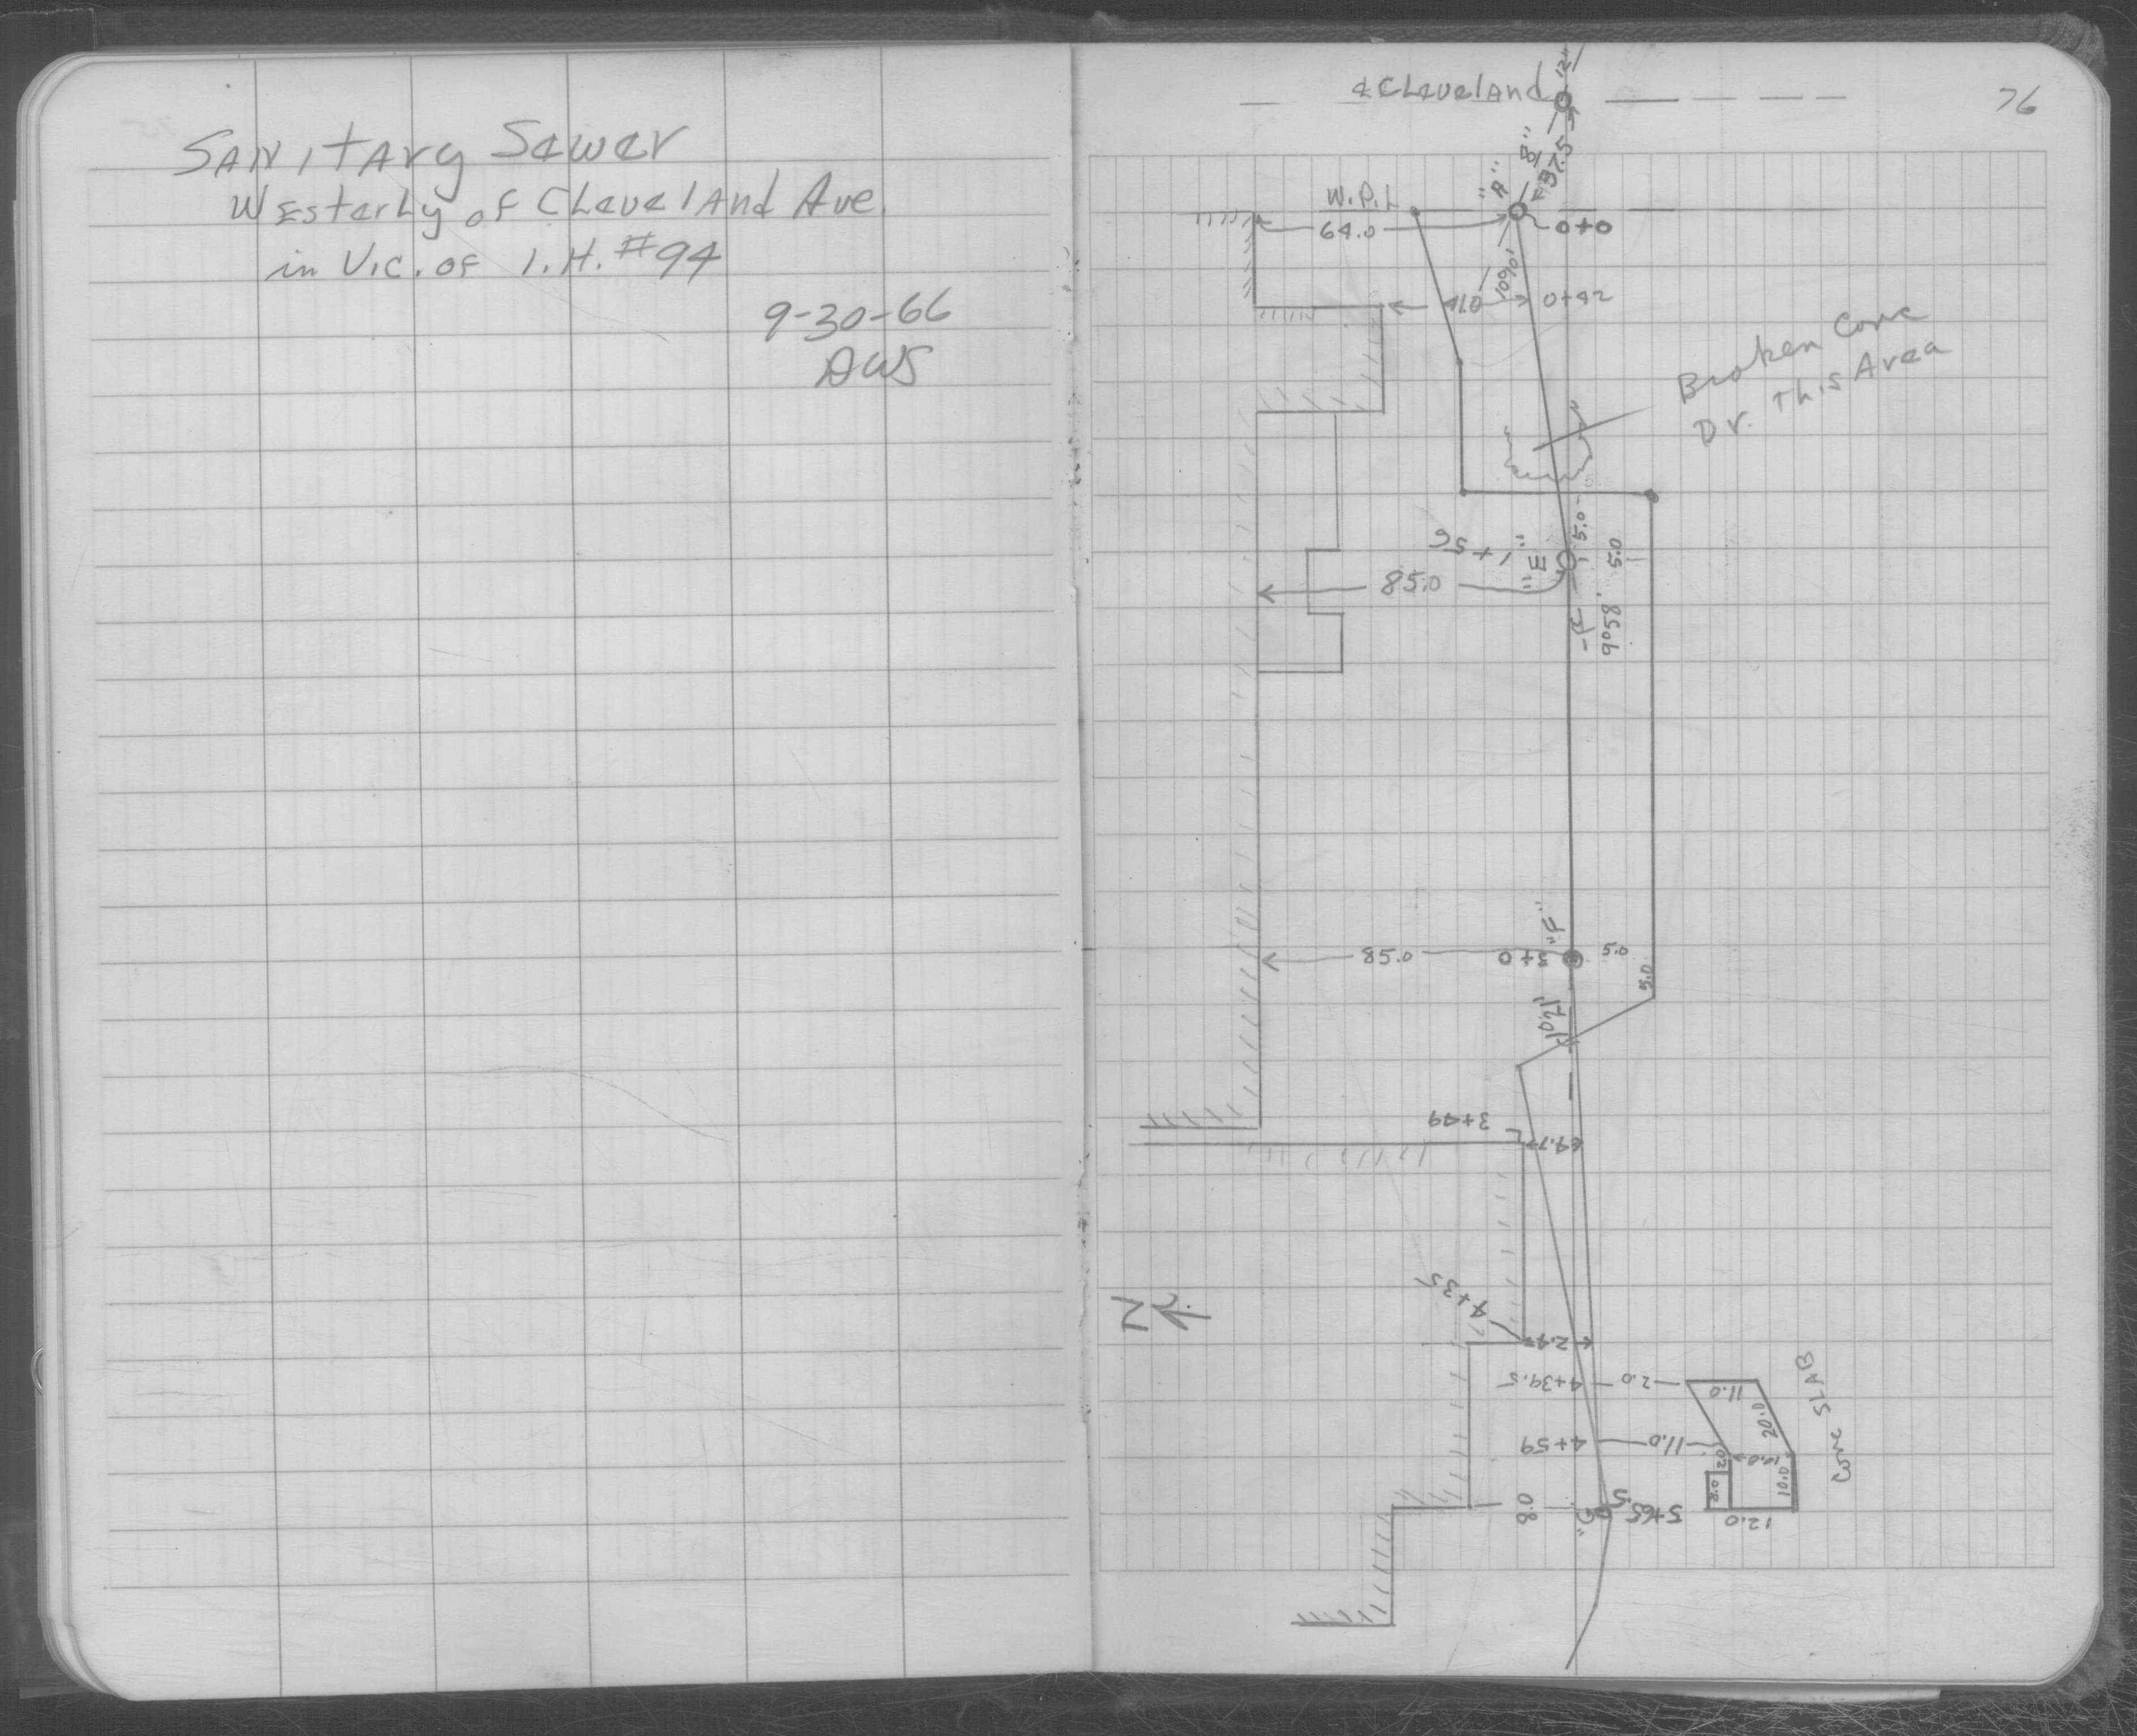 Sanitary Sewer
Westerly of Cleveland Ave.
in Vic. of I.H. #94
9-30-66
DWS
76
℄ Cleveland
12"
8"
37.5
"A"
W.P.L
64.0
0+0
10%
41.0
0+42
Broken Conc
Dr. This Area
5.0
1+56
"E"
5.0
85.0
9°58'
"F"
85.0
3+0
5.0
5.0
1°21'
3+49
4+35
2.4
N
4+39.5
2.0
11.0
20.0
4+59
11.0
2.0
10.0
10.0
8.0
12.0
Conc SLAB
8.0
"G"
5+65